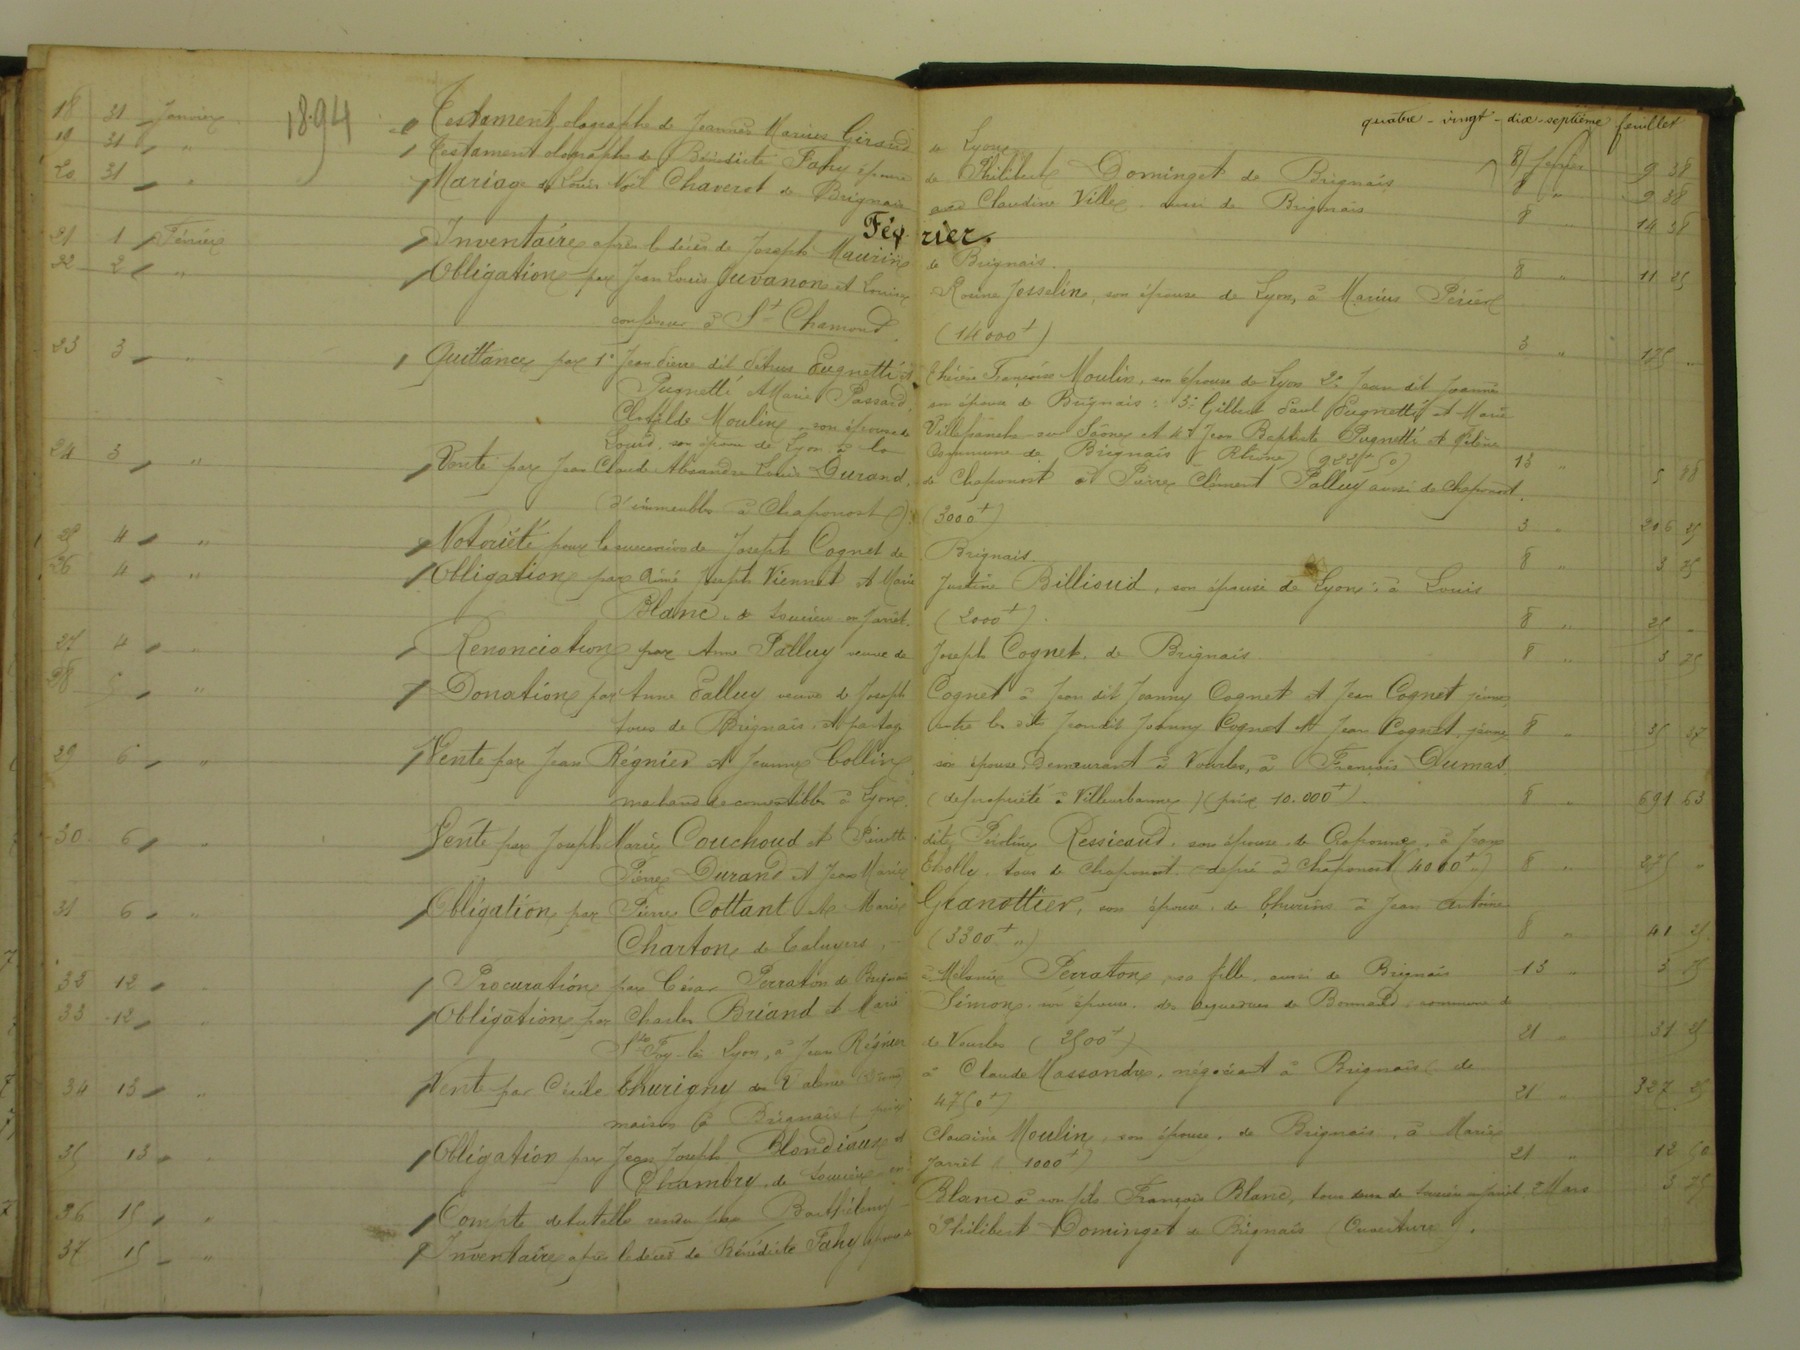 quatre-vingt-dix-septième feuillet
1894
18 31 Janvier Testament olographe de Jeannès Marius Giraud de Lyon 8 février 9 38
19 31 " Testament olographe de Bénédicte Fahy épouse de Philibert Dominget de Brignais 8 " 9 38
20 31 " Mariage de Louis Noël Chaverot de Brignais avec Claudine Ville aussi de Brignais 8 14 38
Février.
21 1 Février Inventaire après le décès de Joseph Maurin de Brignais. 8 " 11 25
22 2 " Obligation par Jean Louis Juvanon et Louise Rosine Josselin, son épouse de Lyon, à Marius Périer
confiseur à St Chamond (14000f) 3 " 175 "
23 3 " Quittance par 1° Jean Pierre dit Pugnetti et Thérèse Françoise Moulin, son épouse de Lyon 2° Jean dit Joannès
Pugnetti et Marie Passard, son épouse de Brignais; 3° Gilbert Paul Pugnetti et Marie
Clotilde Moulin, son épouse de Villefranche sur Saône et 4° Jean Baptiste Pugnetti et Hélène
son épouse de Lyon à la Commune de Brignais (Rhône) (922f 50) 13 " 5 88
24 3 " Vente par Jean Claude Alexandre Louis Durand, de Chaponost à Pierre Clément Palluy aussi de Chaponost.
(d'immeubles à Chaponost) (3000f) 3 " 206 25
25 4 " Notoriété pour la succession de Joseph Cognet de Brignais. 8 " 3 75
26 4 " Obligation par Aimé Joseph Viennet et Marie Justine Billioud, son épouse de Lyon, à Louis
Blanc, de Soucieu en Jarret. (2000f). 8 " 25 "
27 4 " Renonciation par Anne Palluy veuve de Joseph Cognet, de Brignais 8 " 3 75
28 5 " Donation par Anne Palluy veuve de Joseph Cognet à Jean dit Joanny Cognet et Jean Cognet jeune,
tous de Brignais, et partage entre les dits Jean dit Joanny Cognet et Jean Cognet, jeune 8 " 35 37
29 6 " Vente par Jean Régnier et Jeanne Collin, son épouse, Demeurant à Vourles, à François Dumas
marchand de comestibles à Lyon. (de propriété à Villeurbanne) (prix 10.000f). 8 " 691 63
30 6 " Vente par Joseph Marie Couchoud et Pierrette dite Péroline Ressicaud, son épouse, de Craponne, à Jean
Pierre Durand et Jean Marie Tholly, tous de Chaponost (de pré à Chaponost (4000f") 8 " 275 "
31 6 " Obligation par Pierre Cottant et Marie Granottier, son épouse, de Thurins à Jean Antoine
Charton de Taluyers, (3300f ") 8 " 41 25
32 12 " Procuration par César Perraton de Brignais à Mélanie Perraton, sa fille, aussi de Brignais 13 " 3 75
33 12 " Obligation par Charles Briand et Marie Simon, son épouse, des aqueducs de Bonnand, commune de
Ste Foy-les Lyon, à Jean Régnier de Vourles (2500f) 21 " 31 25
34 13 " Vente par Cécile Thurigny de Valence (Drôme) à Claude Massandre, négociant à Brignais de
maison à Brignais (prix 4750f) 21 " 327 25
35 13 " Obligation par Jean Joseph Blondiaux et Claudine Moulin, son épouse, de Brignais, à Marie
Chambry, de Soucieu en Jarret (1000f) 21 " 12 50
36 15 " Compte de tutelle rendu par Barthélemy Blanc à son fils François Blanc, tous deux de Soucieu en Jarret 2 Mars 3 75
37 15 " Inventaire après le décès de Bénédicte Fahy épouse de Philibert Dominget de Brignais (Ouverture).